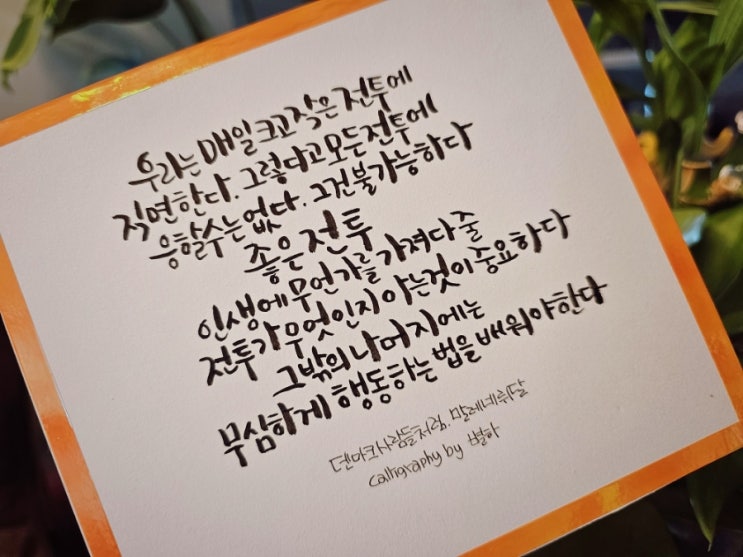 우리는 매일 크고 작은 전투에
직면한다. 그렇다고 모든 전투에
응할수는 없다. 그건 불가능하다
좋은 전투
인생에 무언가를 가져다 줄
전투가 무엇인지 아는것이 중요하다
그 밖의 나머지에는
무심하게 행동하는 법을 배워야한다
덴마크사람들처럼. 말레네뤼달
calligraphy by 별하